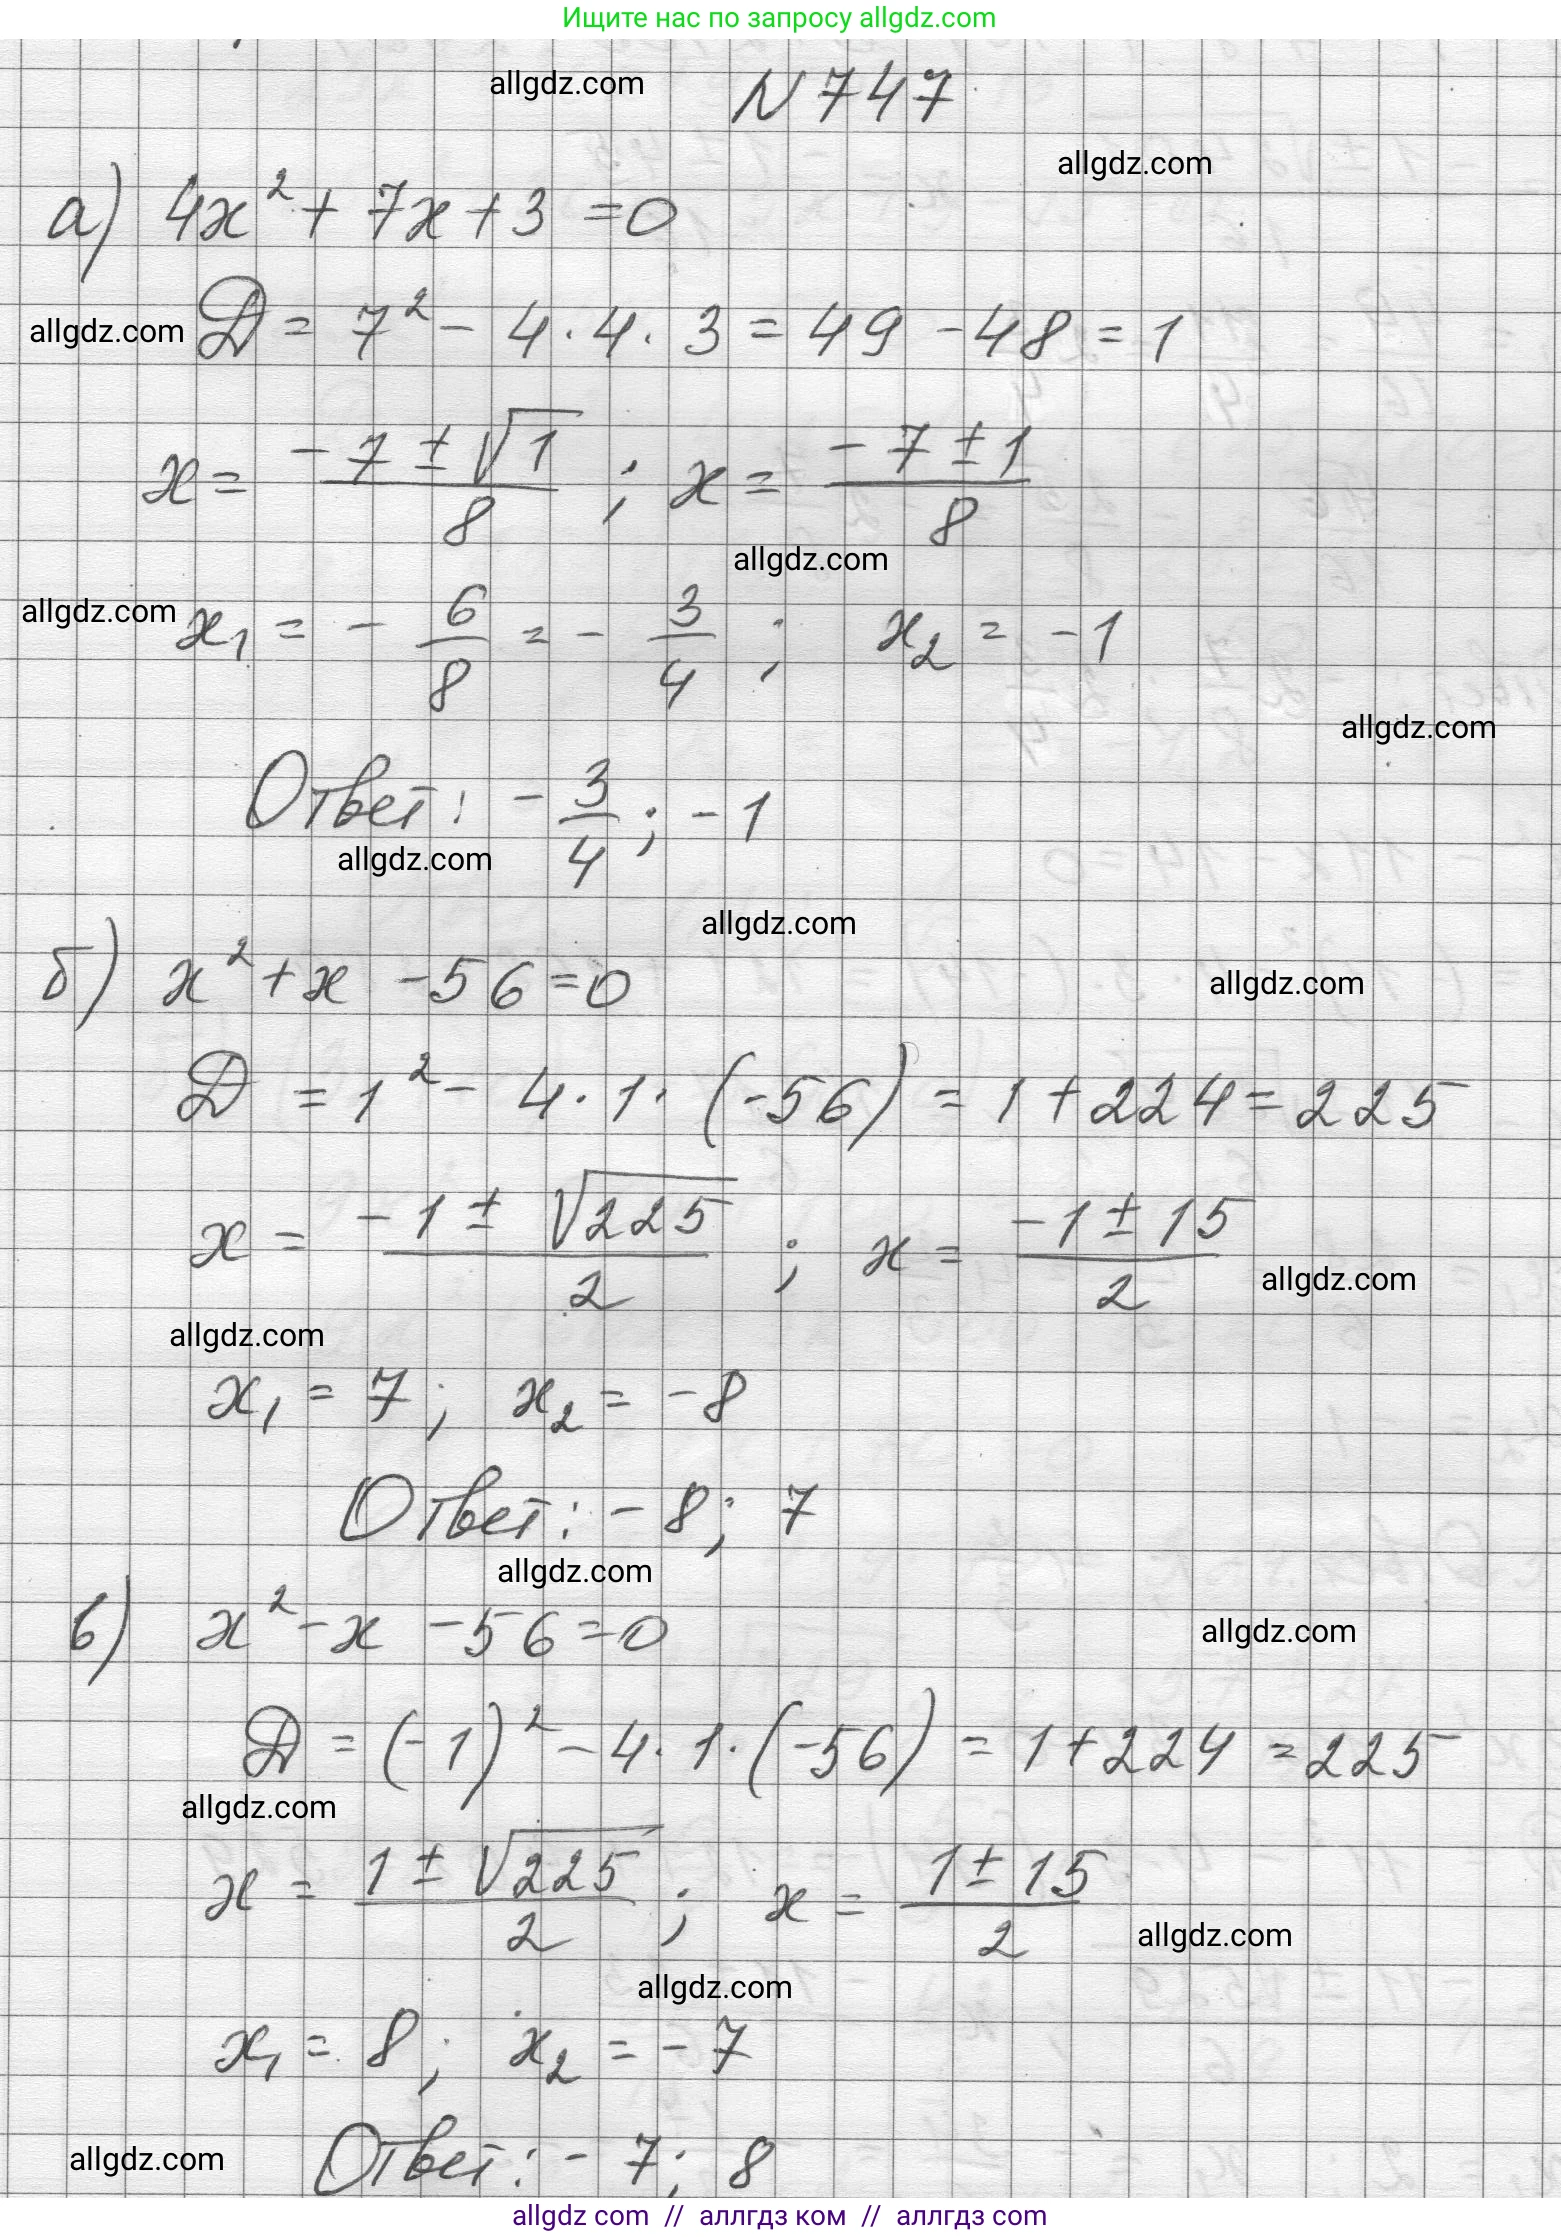 Ищите нас по запросу allgdz.com
allgdz.com
N 747
allgdz.com
а) 4x² + 7x + 3 = 0
allgdz.com
D = 7² - 4 · 4 · 3 = 49 - 48 = 1
x = (-7 ± √1)/8 ; x = (-7 ± 1)/8
allgdz.com
allgdz.com
x₁ = - 6/8 = - 3/4 ; x₂ = -1
allgdz.com
Ответ: - 3/4 ; -1
allgdz.com
allgdz.com
б) x² + x - 56 = 0
allgdz.com
D = 1² - 4 · 1 · (-56) = 1 + 224 = 225
x = (-1 ± √225)/2 ; x = (-1 ± 15)/2
allgdz.com
allgdz.com
x₁ = 7 ; x₂ = -8
Ответ: -8 ; 7
allgdz.com
в) x² - x - 56 = 0
allgdz.com
D = (-1)² - 4 · 1 · (-56) = 1 + 224 = 225
allgdz.com
x = (1 ± √225)/2 ; x = (1 ± 15)/2
allgdz.com
allgdz.com
x₁ = 8 ; x₂ = -7
Ответ: -7 ; 8
allgdz.com
allgdz com // аллгдз ком // аллгдз com